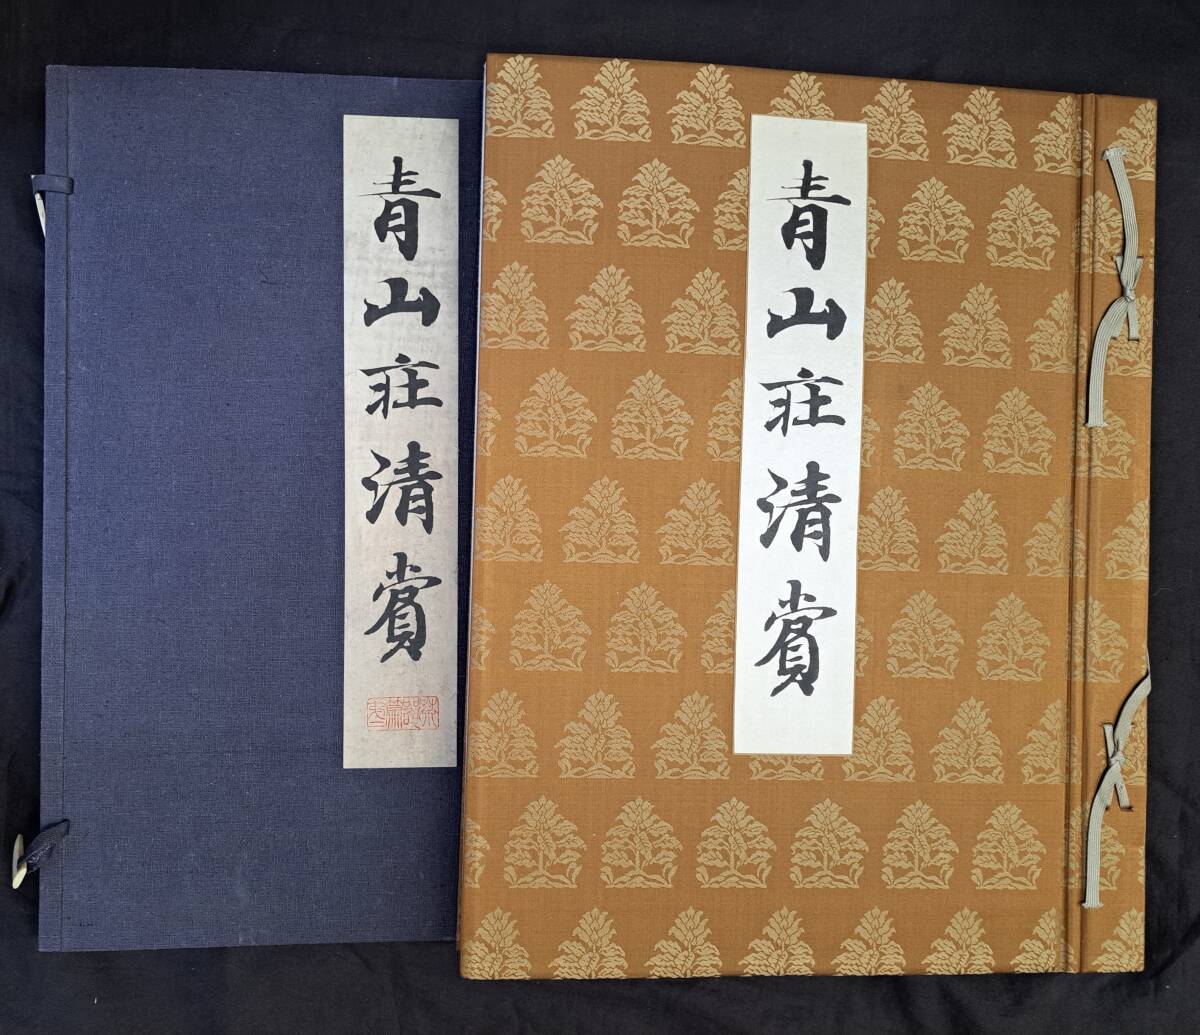 青山荘清賞
青山荘清賞